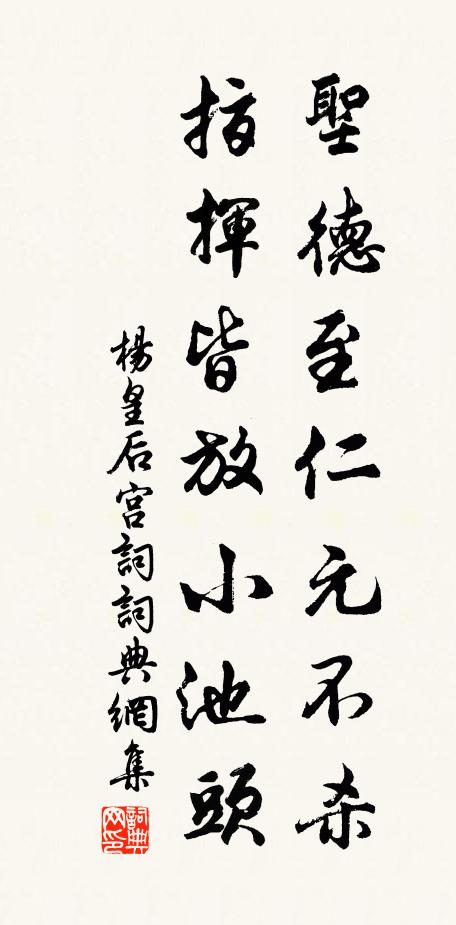 聖德至仁元不杀
指揮皆放小池頭
楊皇后宫詞詞典網集
詞典网印